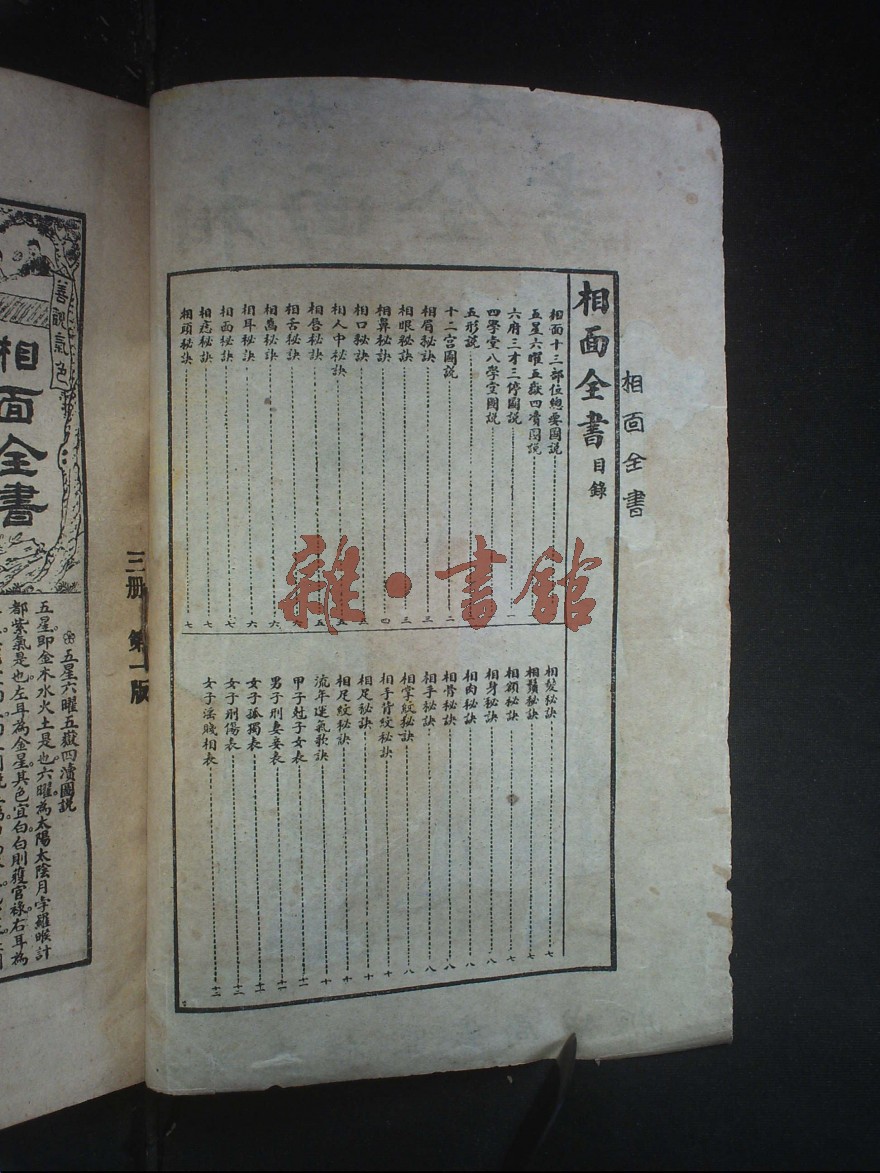 相面全書
相面全書目錄
相面十三部位總要圖說
五星六曜五嶽四瀆圖說
六府三才三停圖說 一
四學堂八學堂圖說
五形說
十二宮圖說 二
相眉秘訣 三
相眼秘訣 三
相鼻秘訣 四
相口秘訣
相人中秘訣 五
相唇秘訣 五
相舌秘訣 六
相齒秘訣 六
相耳秘訣 六
相面秘訣 七
相痣秘訣 七
相頭秘訣 七
相髮秘訣 七
相鬚秘訣 七
相額秘訣 七
相身秘訣 八
相肉秘訣 八
相骨秘訣 八
相手秘訣 八
相掌紋秘訣 八
相手背紋秘訣 十
相足秘訣 十
相足紋秘訣 十
流年運氣歌訣 十
甲子尅子女表 十一
男子刑妻妾表 十一
女子孤獨表 十二
女子刑傷表 十二
女子淫賤相表 十二
雜·書館
三册 第一版
善觀氣色
相面全書
五星六曜五嶽四瀆圖說
五星即金木水火土是也。六曜為太陽太陰月孛羅睺計
都紫氣是也。左耳為金星其色宜白白則獲官祿。右耳為